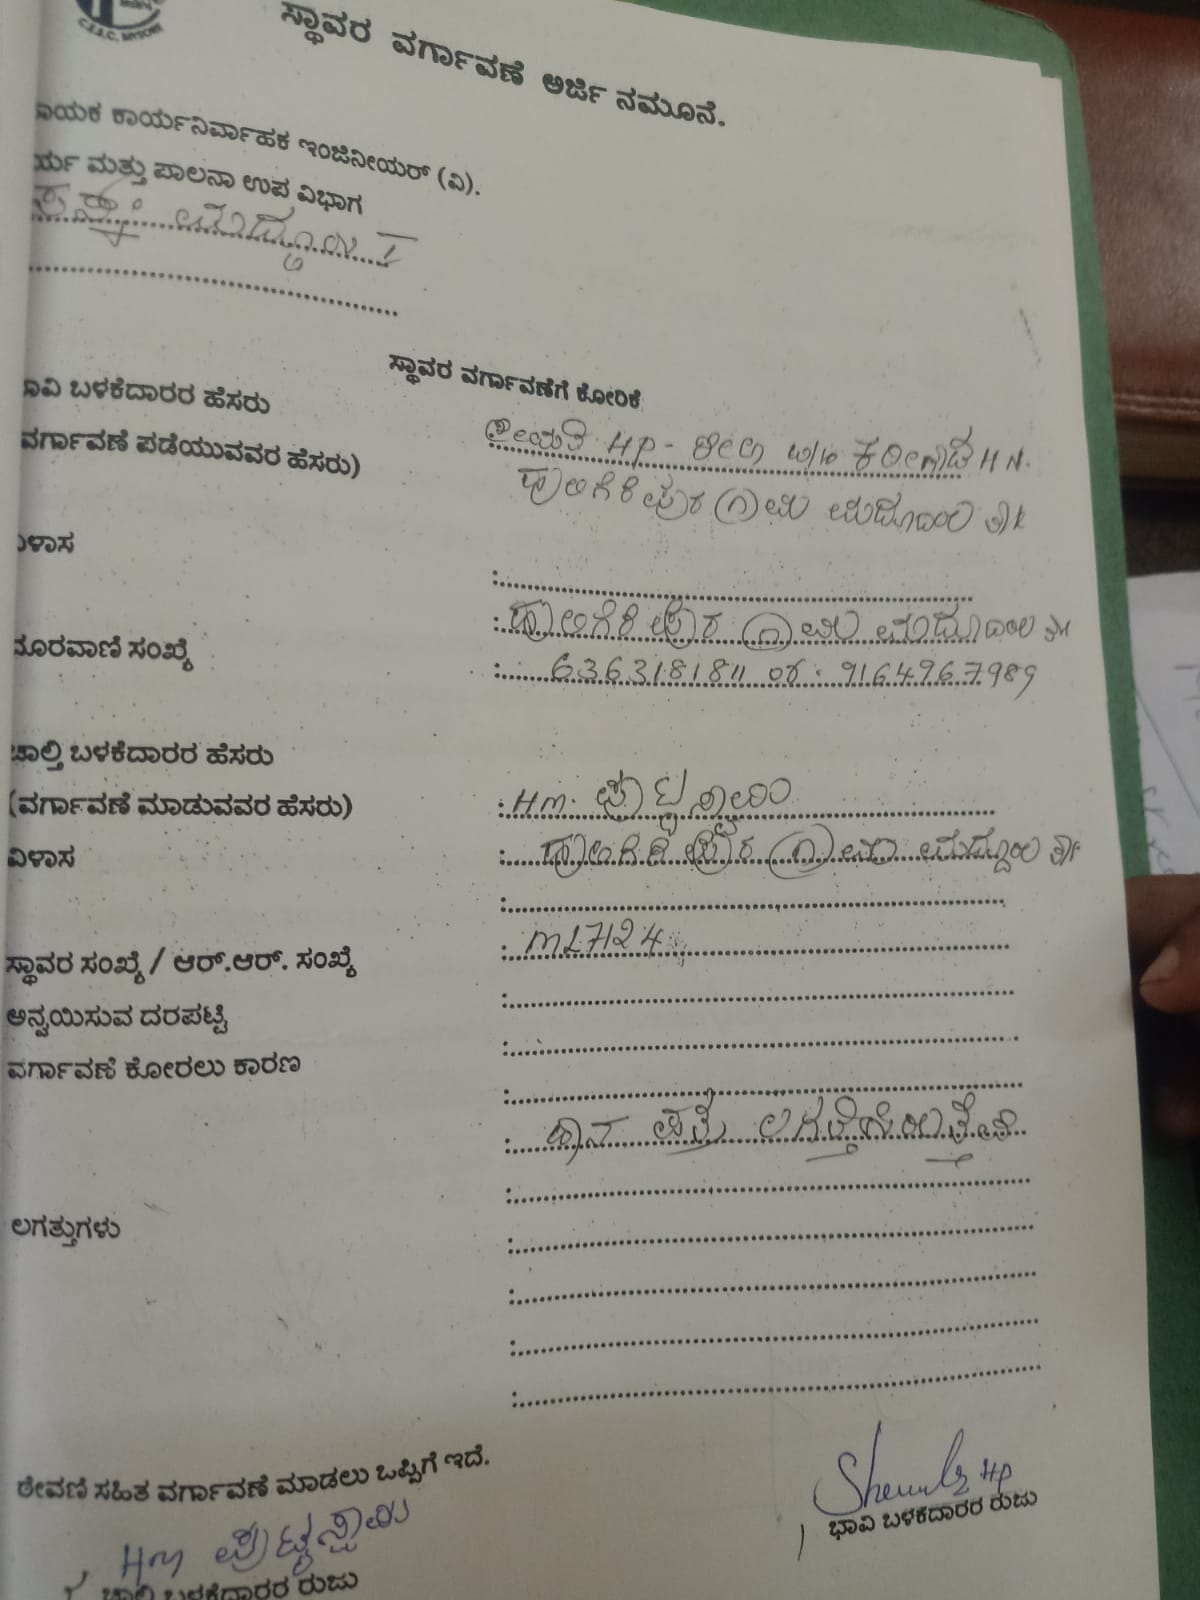 C.E.S.C, MYSORE
ಸ್ಥಾವರ ವರ್ಗಾವಣೆ ಅರ್ಜಿ ನಮೂನೆ.
ಾಯಕ ಕಾರ್ಯನಿರ್ವಾಹಕ ಇಂಜಿನೀಯರ್ (ವಿ).
ರ್ಯ ಮತ್ತು ಪಾಲನಾ ಉಪ ವಿಭಾಗ
I
ಸ್ಥಾವರ ವರ್ಗಾವಣೆಗೆ ಕೋರಿಕೆ
ಾವಿ ಬಳಕೆದಾರರ ಹೆಸರು
ವರ್ಗಾವಣೆ ಪಡೆಯುವವರ ಹೆಸರು)
ಶ್ರೀಮತಿ HP - ಶೀಲ w/o ಕರೀಗೌಡ H N.
ಹಾಲಗೆರೆ ಪುರ ಗ್ರಾಮ ಮದ್ದೂರು
ಿಳಾಸ :
: ಹಾಲಗೆರೆ ಪುರ ಗ್ರಾಮ ಮದ್ದೂರು
ದೂರವಾಣಿ ಸಂಖ್ಯೆ : 6363181811 or . 9164967989
ಚಾಲ್ತಿ ಬಳಕೆದಾರರ ಹೆಸರು
(ವರ್ಗಾವಣೆ ಮಾಡುವವರ ಹೆಸರು) : Hm. ಪುಟ್ಟಸ್ವಾಮಿ
ವಿಳಾಸ : ಹಾಲಗೆರೆ ಪುರ ಗ್ರಾಮ ಮದ್ದೂರು
:
ಸ್ಥಾವರ ಸಂಖ್ಯೆ / ಆರ್.ಆರ್. ಸಂಖ್ಯೆ : ML7124
ಅನ್ವಯಿಸುವ ದರಪಟ್ಟಿ :
ವರ್ಗಾವಣೆ ಕೋರಲು ಕಾರಣ :
:
: ದಾನ ಪತ್ರ ಲಗತ್ತಿಸಿರುತ್ತೇವೆ
:
ಲಗತ್ತುಗಳು :
:
:
:
ಠೇವಣಿ ಸಹಿತ ವರ್ಗಾವಣೆ ಮಾಡಲು ಒಪ್ಪಿಗೆ ಇದೆ.
HM ಪುಟ್ಟಸ್ವಾಮಿ
HP
ಭಾವಿ ಬಳಕೆದಾರರ ರುಜು
ಚಾಲ್ತಿ ಬಳಕೆದಾರರ ರುಜು